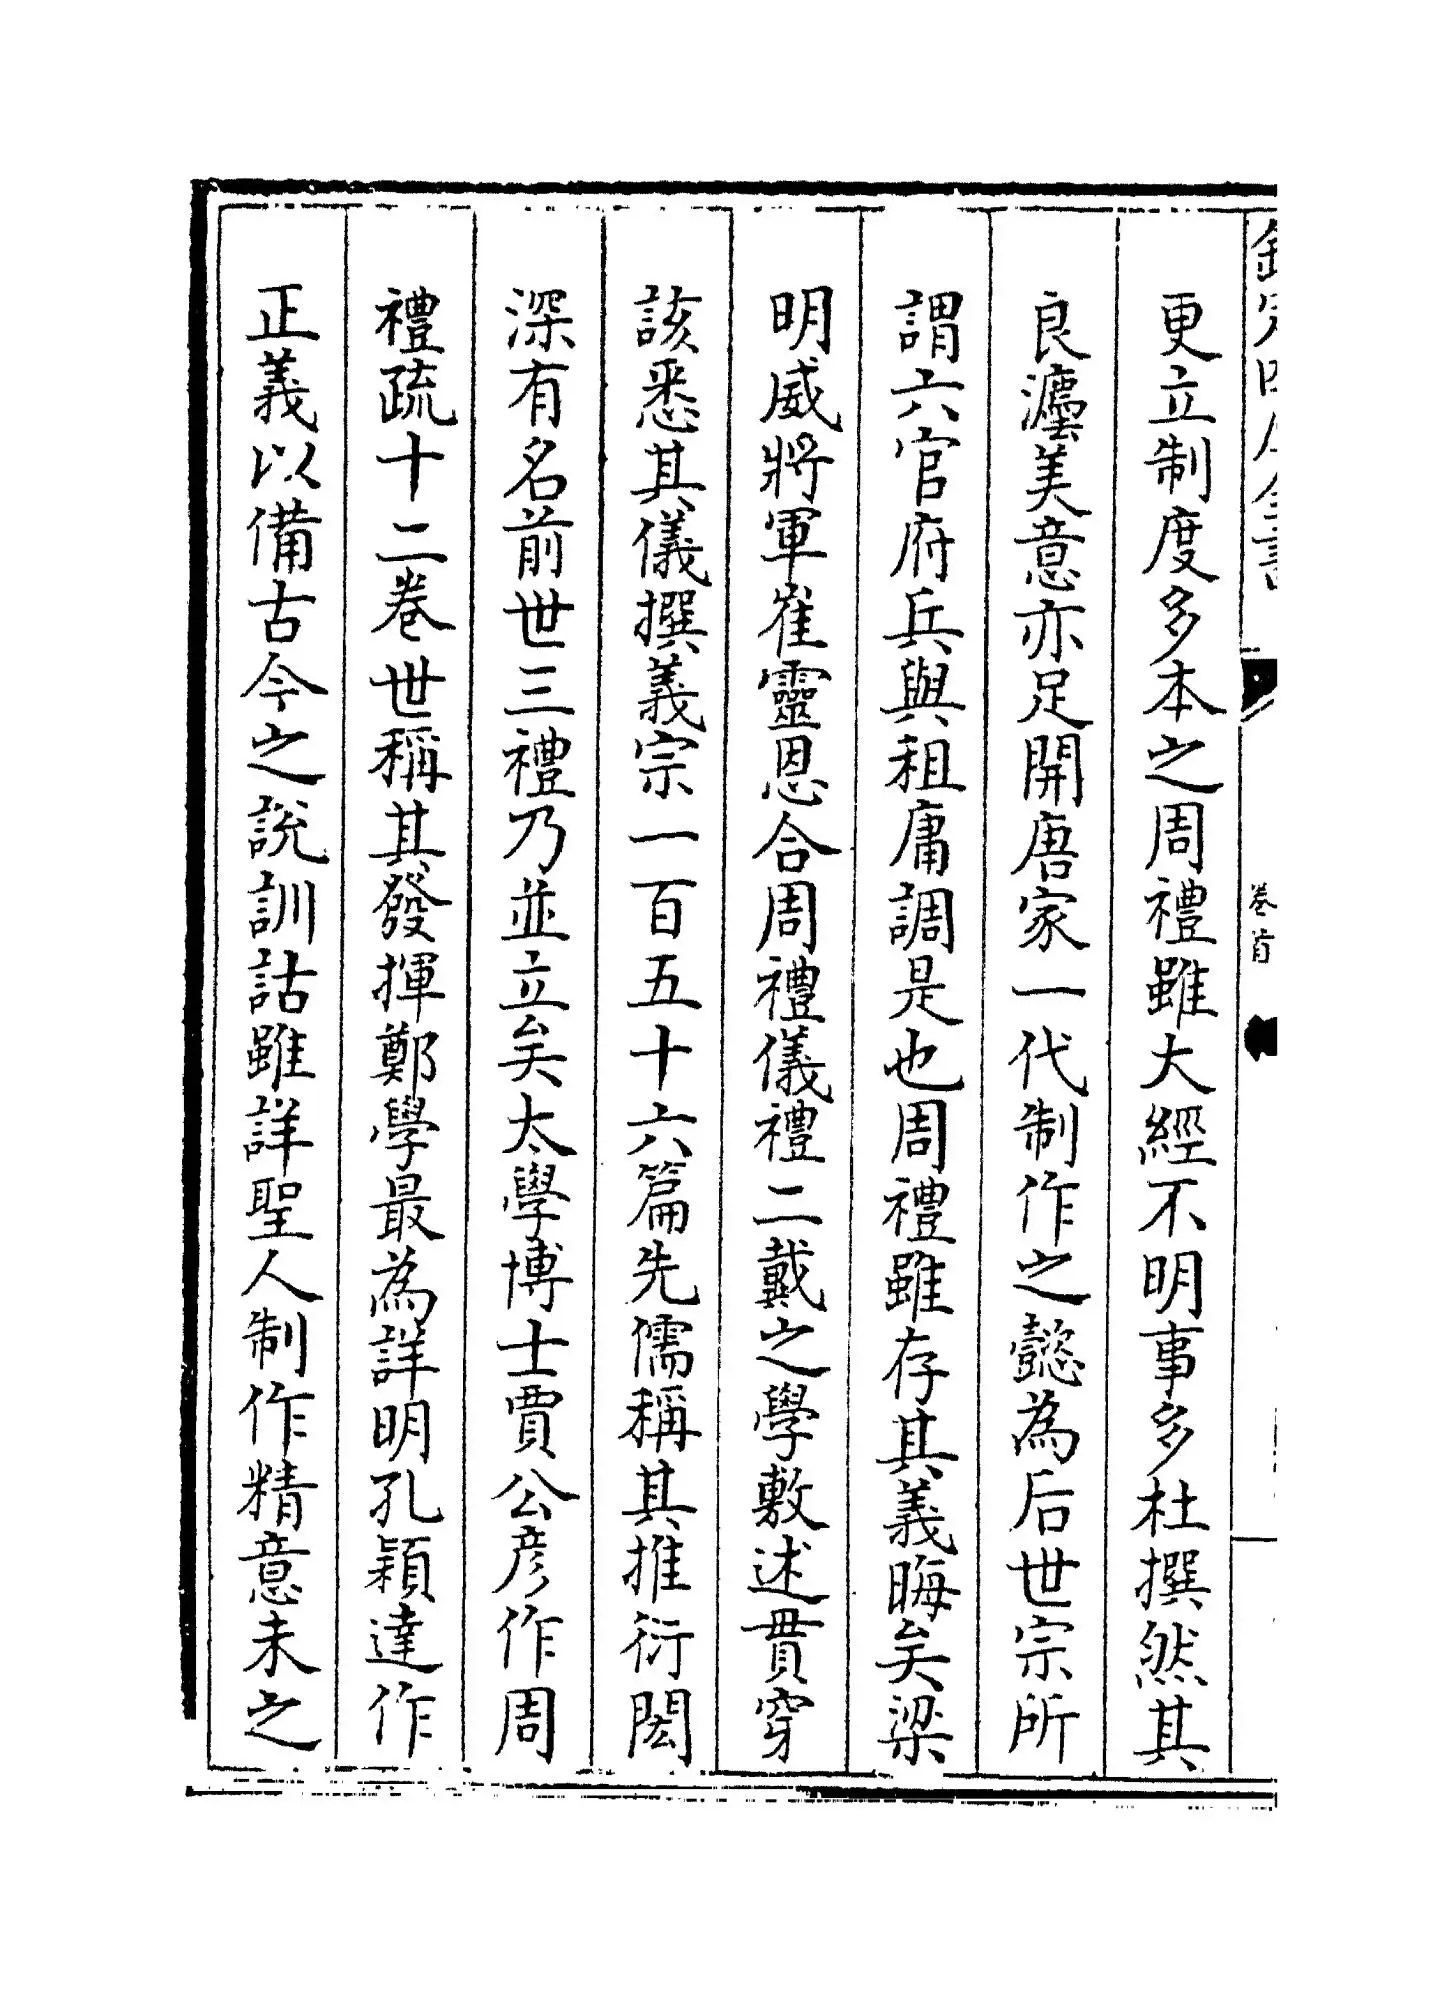 更立制度多本之周禮雖大經不明事多杜撰然其
良灋美意亦足開唐家一代制作之懿為后世宗所
謂六官府兵與租庸調是也周禮雖存其義晦矣梁
明威將軍崔靈恩合周禮儀禮二戴之學敷述貫穿
該悉其儀撰義宗一百五十六篇先儒稱其推衍閎
深有名前世三禮乃並立矣太學博士賈公彦作周
禮疏十二卷世稱其發揮鄭學最為詳明孔穎達作
正義以備古今之說訓詁雖詳聖人制作精意未之
卷首